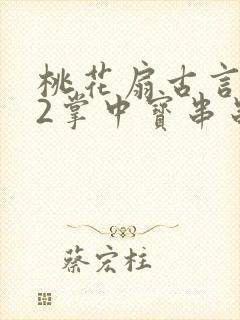 桃花扇古言
2掌中寳串
蔡宏柱